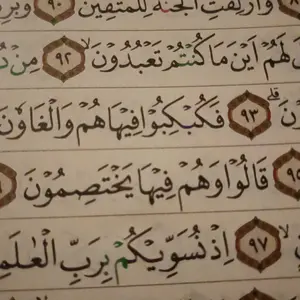 وَاُزْلِفَتِ الْجَنَّةُ لِلْمُتَّقِينَ ٩٠
لَهُمْ اَيْنَ مَا كُنْتُمْ تَعْبُدُونَ ٩٢ مِنْ
٩٣ فَكُبْكِبُوا فِيهَا هُمْ وَالْغَاوُنَ
٩٥ قَالُوا وَهُمْ فِيهَا يَخْتَصِمُونَ
٩٧ اِذْ نُسَوِّيكُمْ بِرَبِّ